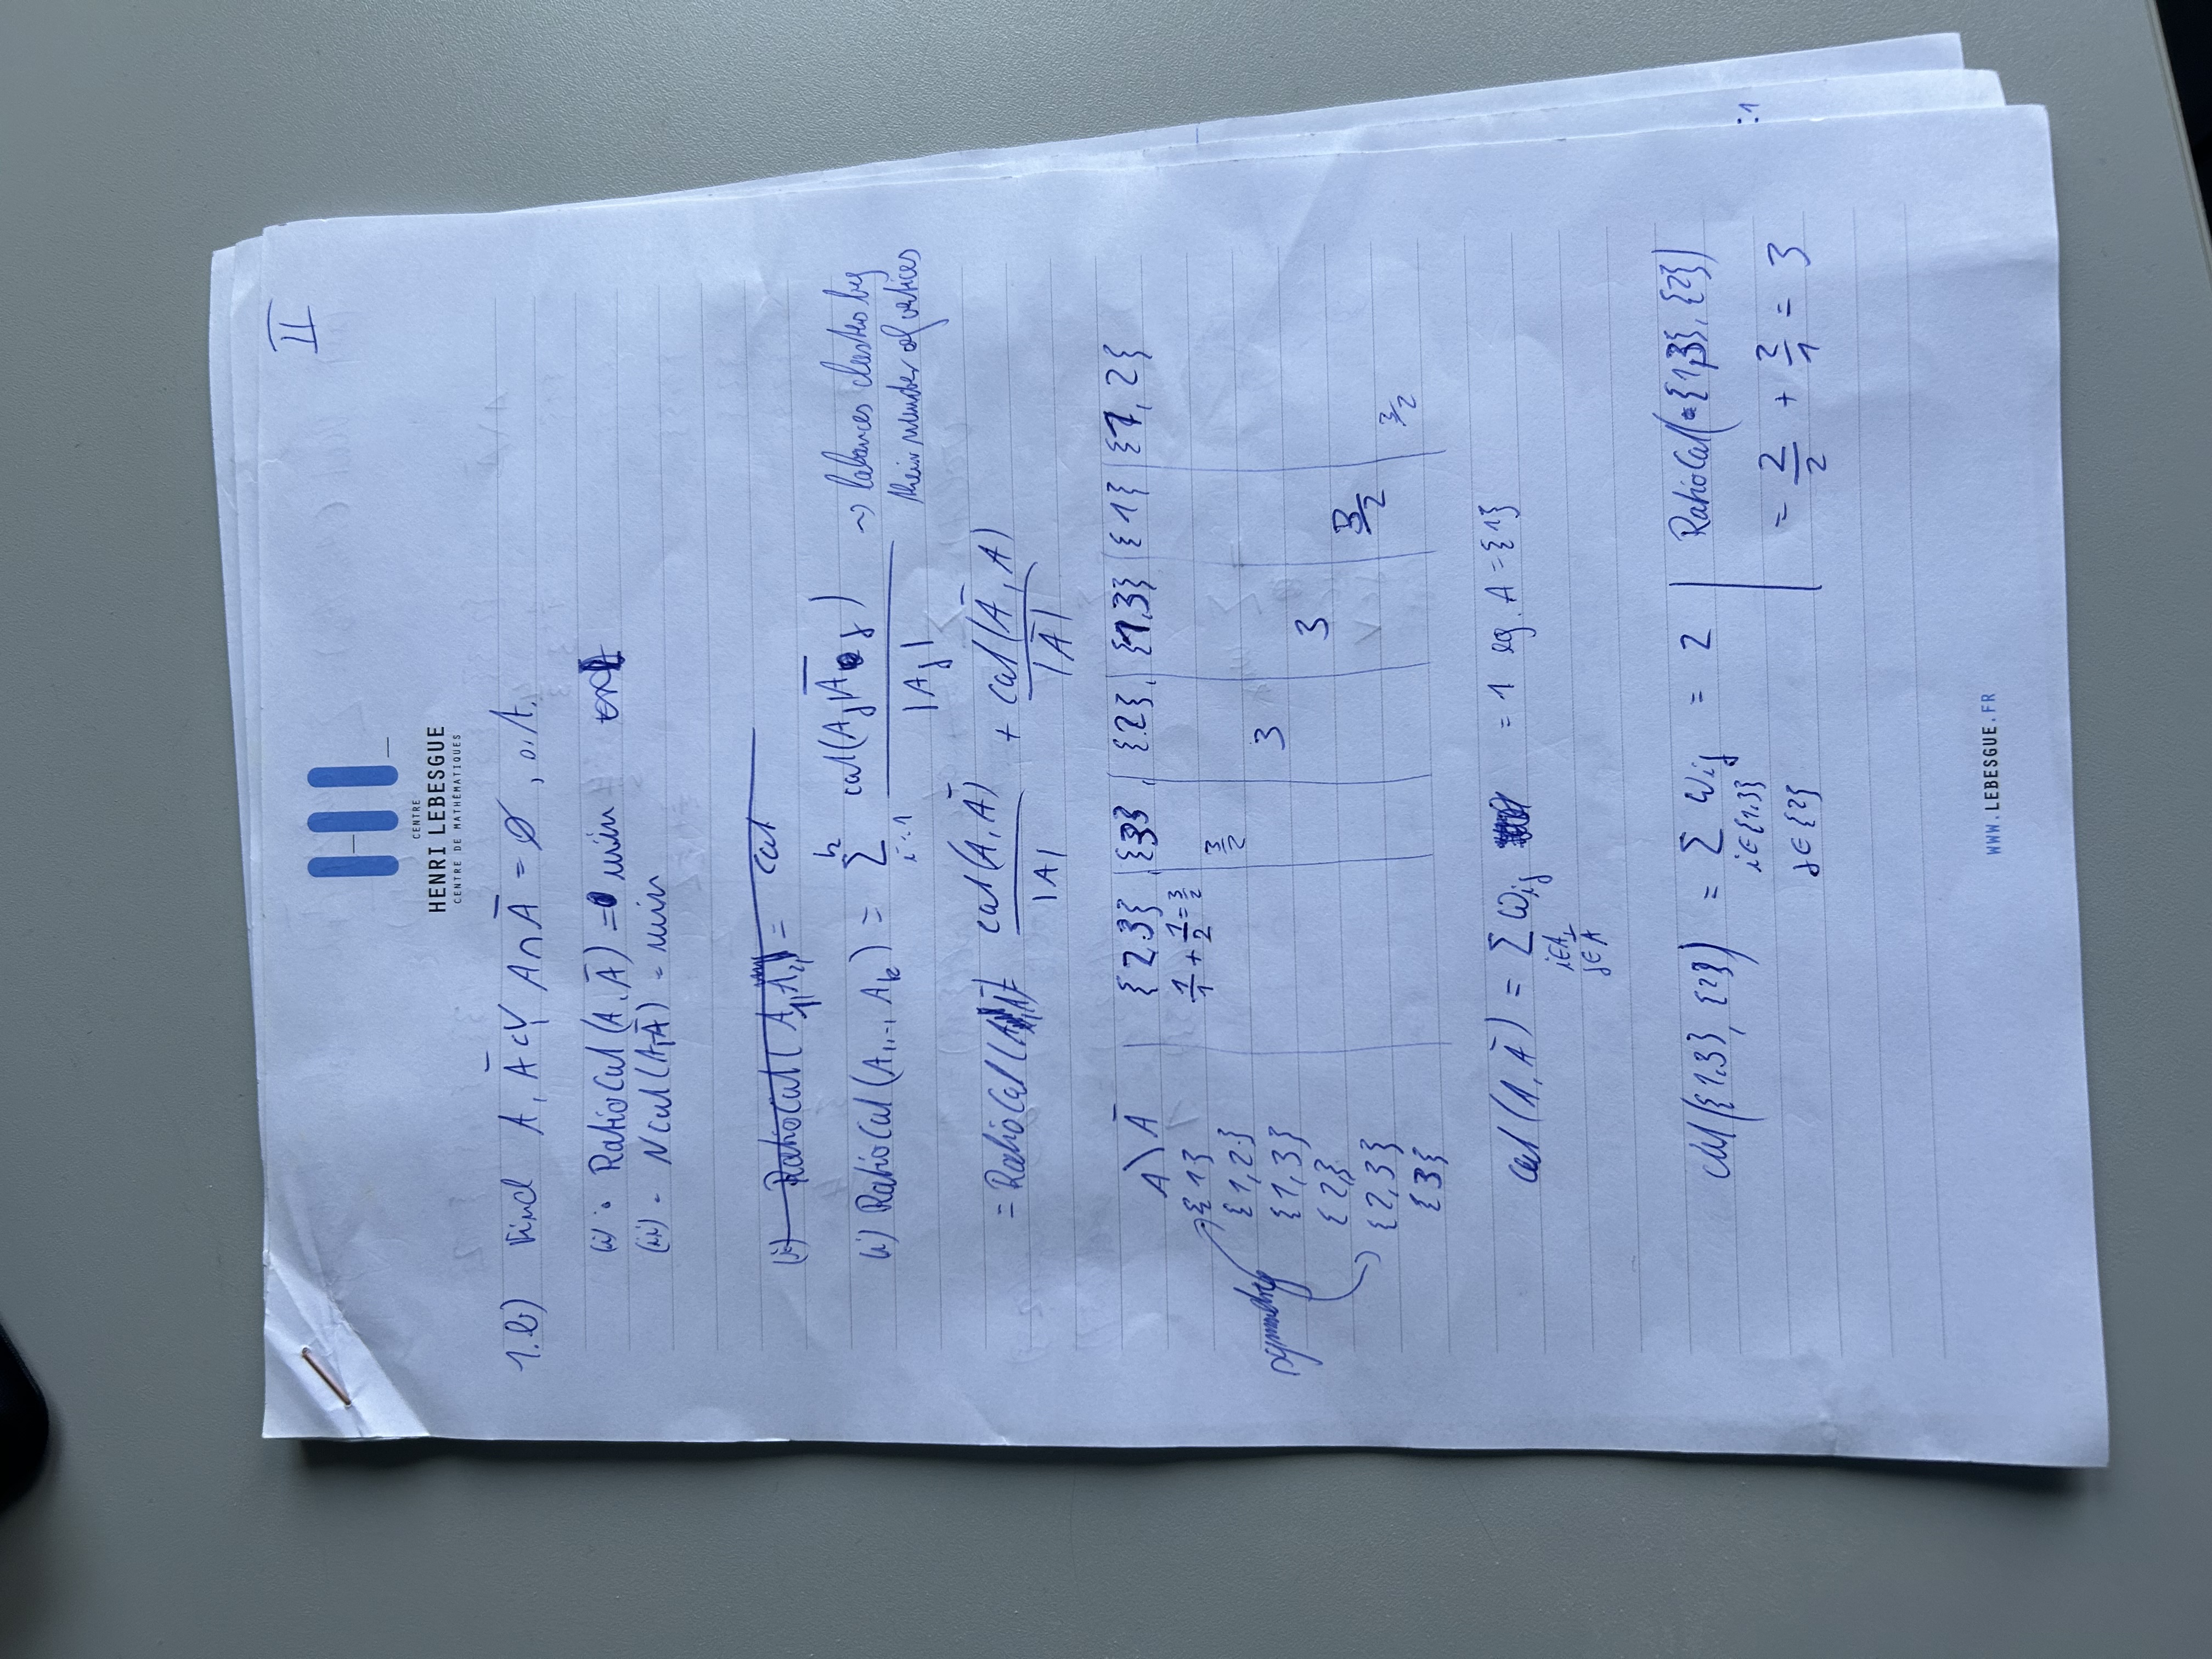 II
CENTRE
HENRI LEBESGUE
CENTRE DE MATHÉMATIQUES
1.b) Find A, Ā ⊂ V, A ∩ Ā = ∅, s.t.
(i) • RatioCut(A, Ā) = min
(ii) - NCut(A, Ā) = min
(i) RatioCut(A₁, A₂) = cut
(i) RatioCut(A₁, ..., A_k) = ∑_{i=1}^{k} cut(A_j, Ā_j) / |A_j| ~> balances clusters by
their number of vertices
= RatioCut(A, Ā) = cut(A, Ā) / |A| + cut(Ā, A) / |Ā|
A \ Ā | {2,3} | {3} | {2} | {1,3} | {1} | {1,2}
{1} 1/1 + 1/2 = 3/2
{1,2} 3/2
{1,3} 3
{2} 3
{2,3} 3/2
{3} 3/2
symmetry
cut(A, Ā) = ∑_{i∈A, j∈Ā} w_ij = 1 eg. A = {1}
cut({1,3}, {2}) = ∑_{i∈{1,3} j∈{2}} w_ij = 2 | RatioCut({1,3}, {2})
= 2/2 + 2/1 = 3
=1
WWW.LEBESGUE.FR